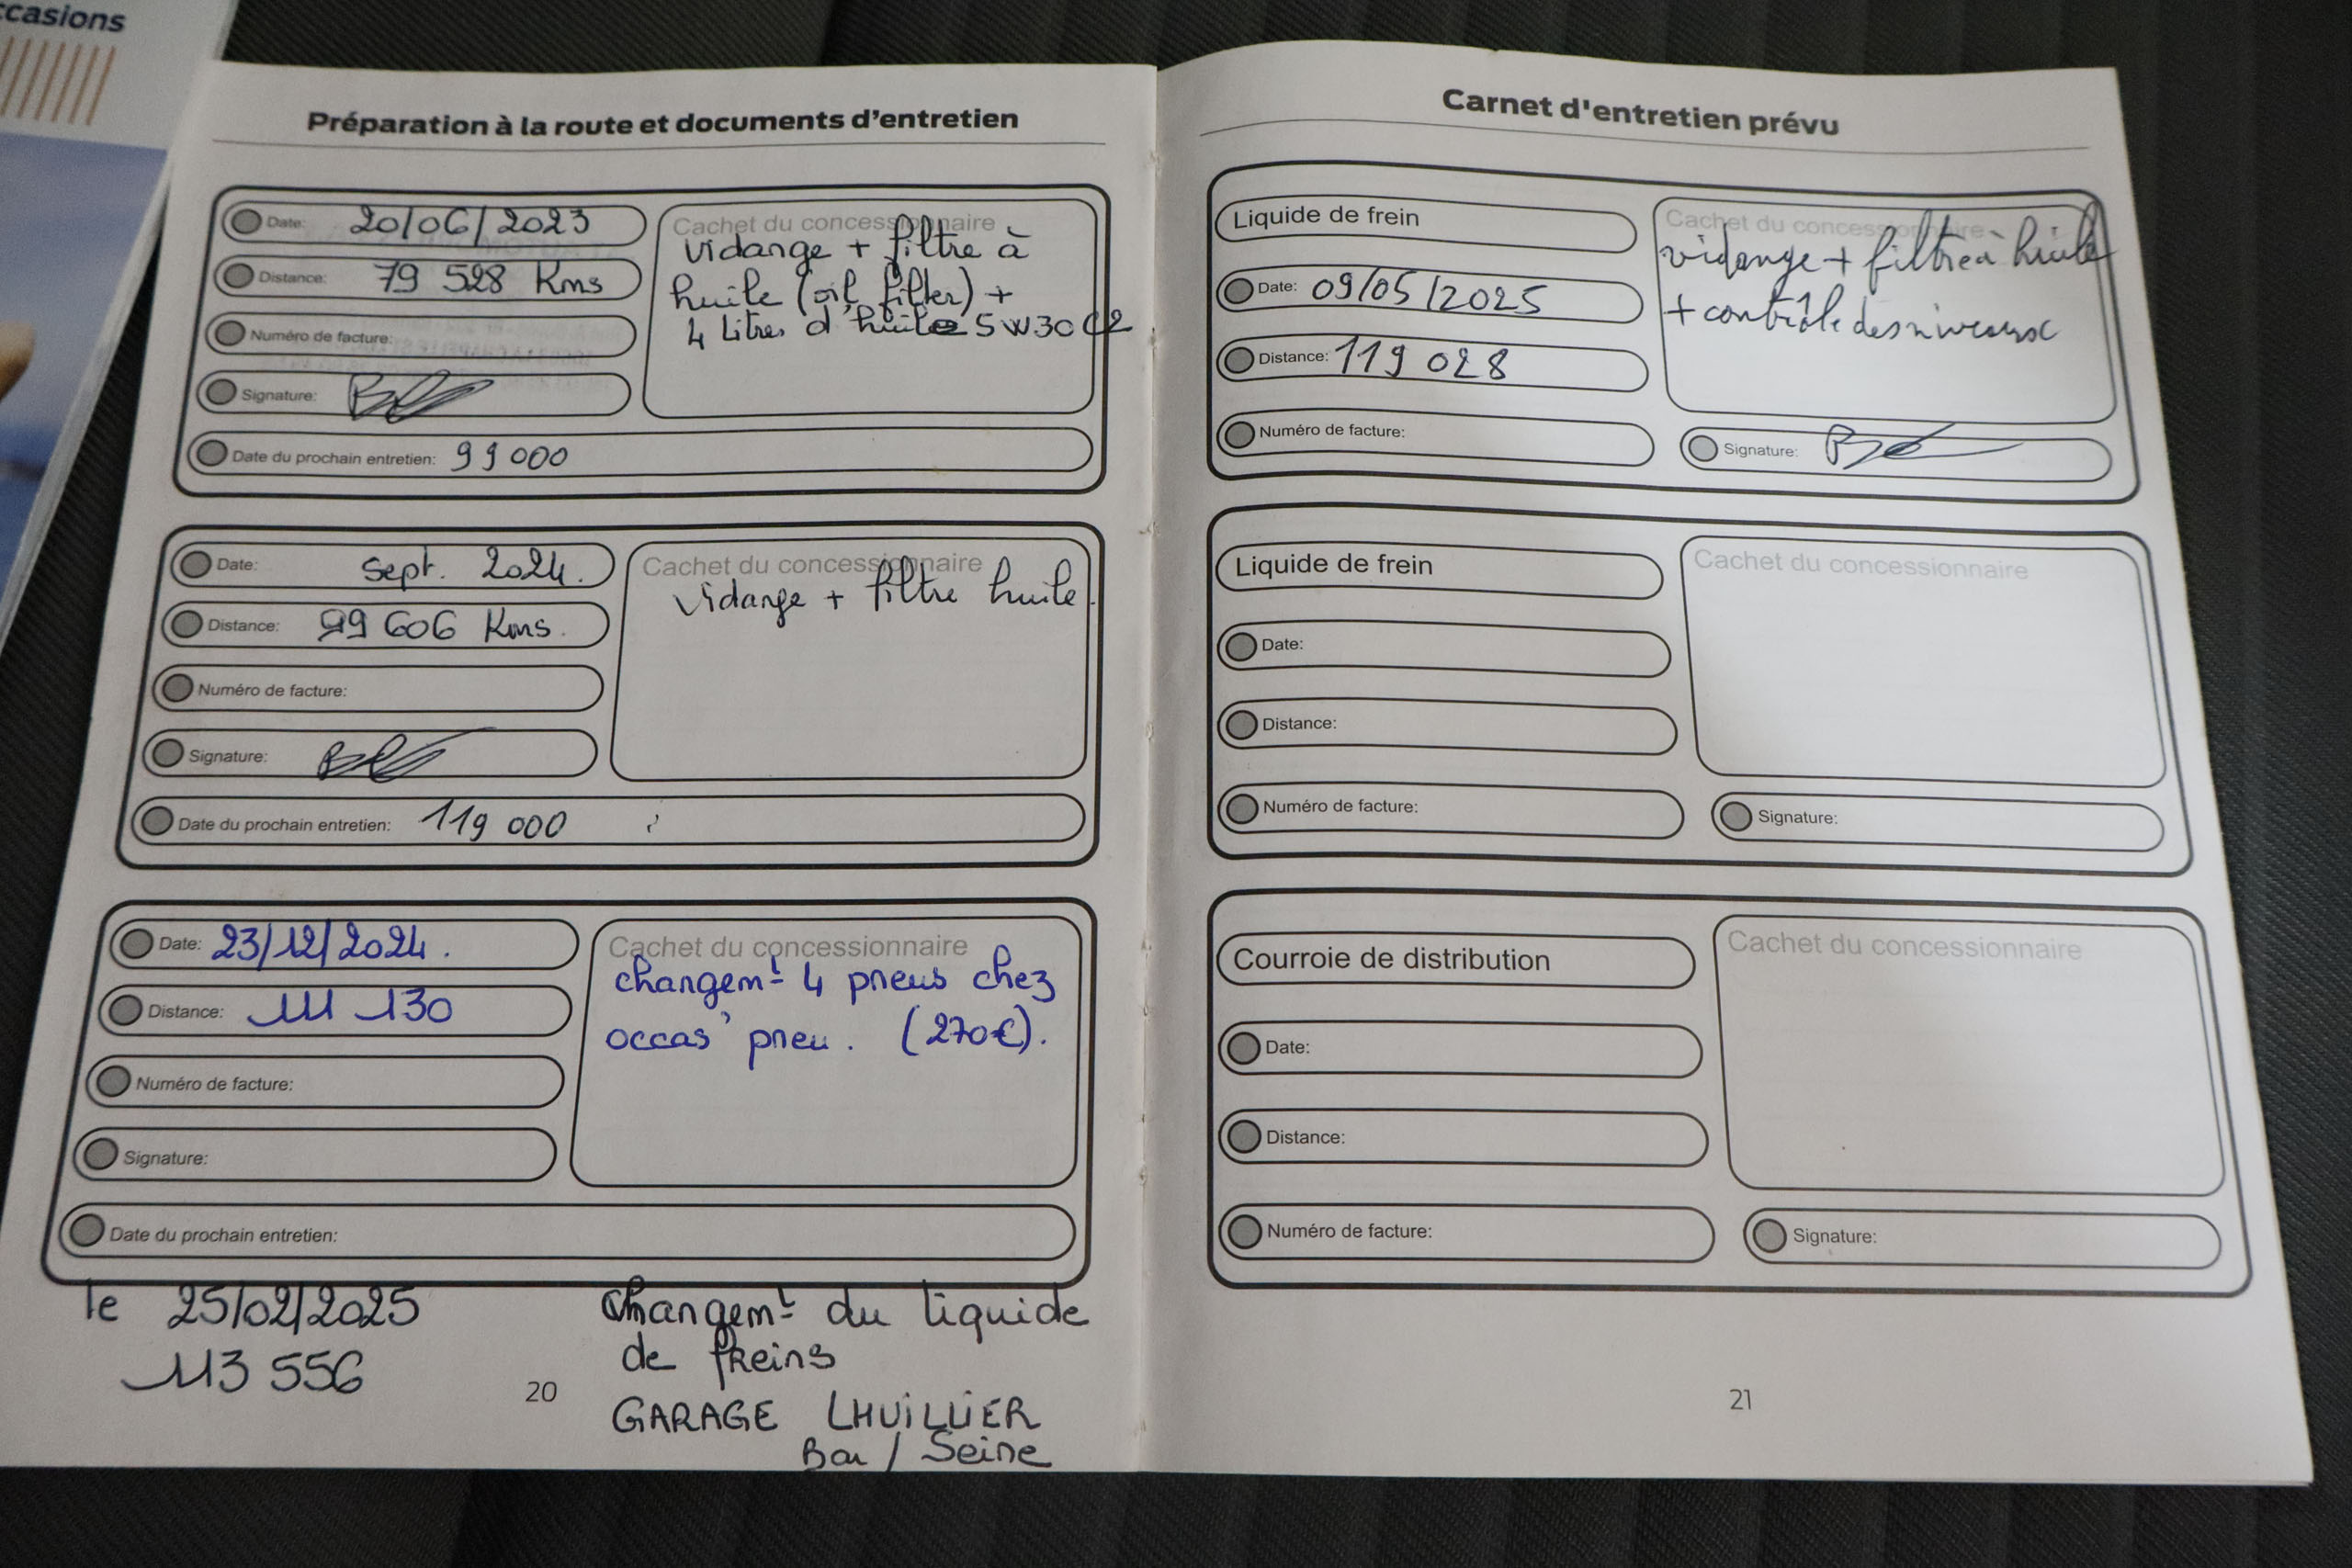 ccasions
Préparation à la route et documents d'entretien
Date: 20/06/2023
Distance: 79 528 Kms
Numéro de facture:
Signature:
Cachet du concessionnaire
vidange + filtre à
huile (oil filter) +
4 Litres d'huile 5W30 C2
Date du prochain entretien: 99 000
Date: sept. 2024.
Distance: 99 606 Kms.
Numéro de facture:
Signature:
Cachet du concessionnaire
vidange + filtre huile.
Date du prochain entretien: 119 000
Date: 23/12/2024.
Distance: 111 130
Numéro de facture:
Signature:
Cachet du concessionnaire
changemt 4 pneus chez
occas' pneu. (270€).
Date du prochain entretien:
le 25/02/2025
113 556
Changemt du liquide
de freins
GARAGE LHUILLIER
Bar / Seine
20
Carnet d'entretien prévu
Liquide de frein
Date: 09/05/2025
Distance: 119 028
Numéro de facture:
Cachet du concessionnaire
vidange + filtre à huile
+ contrôle des niveaux
Signature:
Liquide de frein
Date:
Distance:
Numéro de facture:
Cachet du concessionnaire
Signature:
Courroie de distribution
Date:
Distance:
Numéro de facture:
Cachet du concessionnaire
Signature:
21